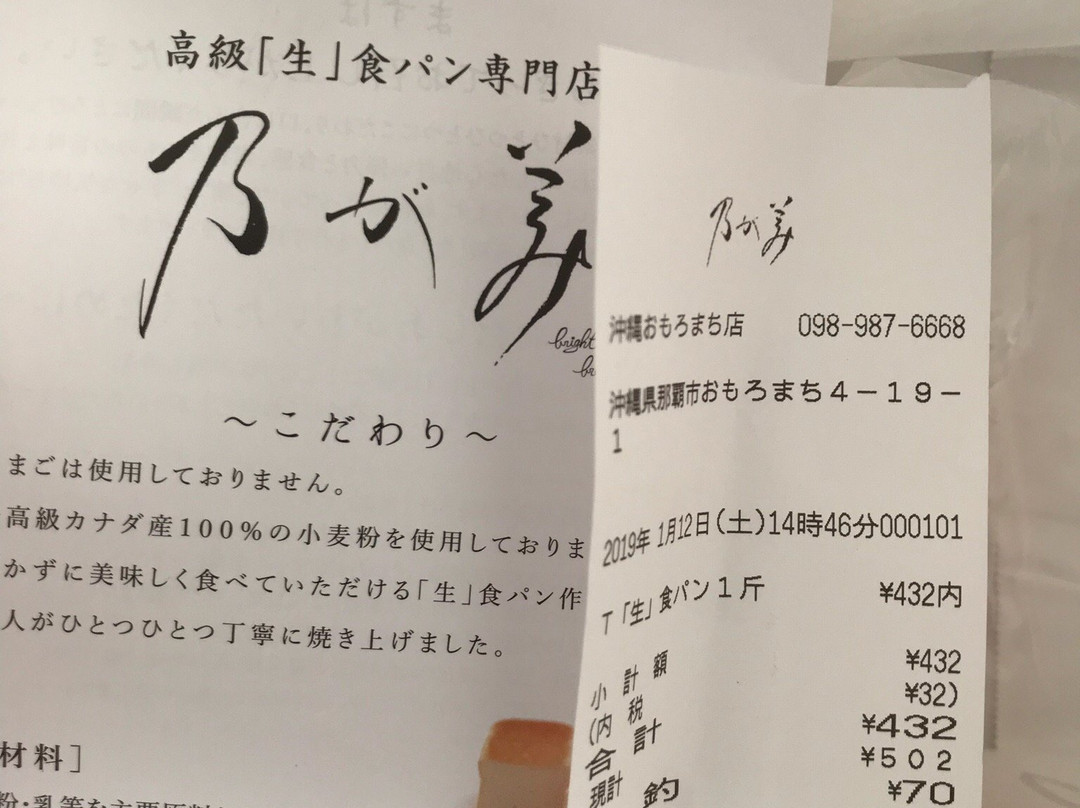 高級「生」食パン専門店
乃が美
bright
br
～こだわり～
まごは使用しておりません。
高級カナダ産100%の小麦粉を使用しておりま
かずに美味しく食べていただける「生」食パン作
人がひとつひとつ丁寧に焼き上げました。
材料］
粉・乳等を主要原料
乃が美
沖縄おもろまち店 098-987-6668
沖縄県那覇市おもろまち４－１９－
1
2019年 1月12日(土)14時46分000101
T「生」食パン１斤 ¥432内
小計額 ¥432
(内税 ¥32)
合計 ¥432
現計 ¥５０２
釣 ¥70